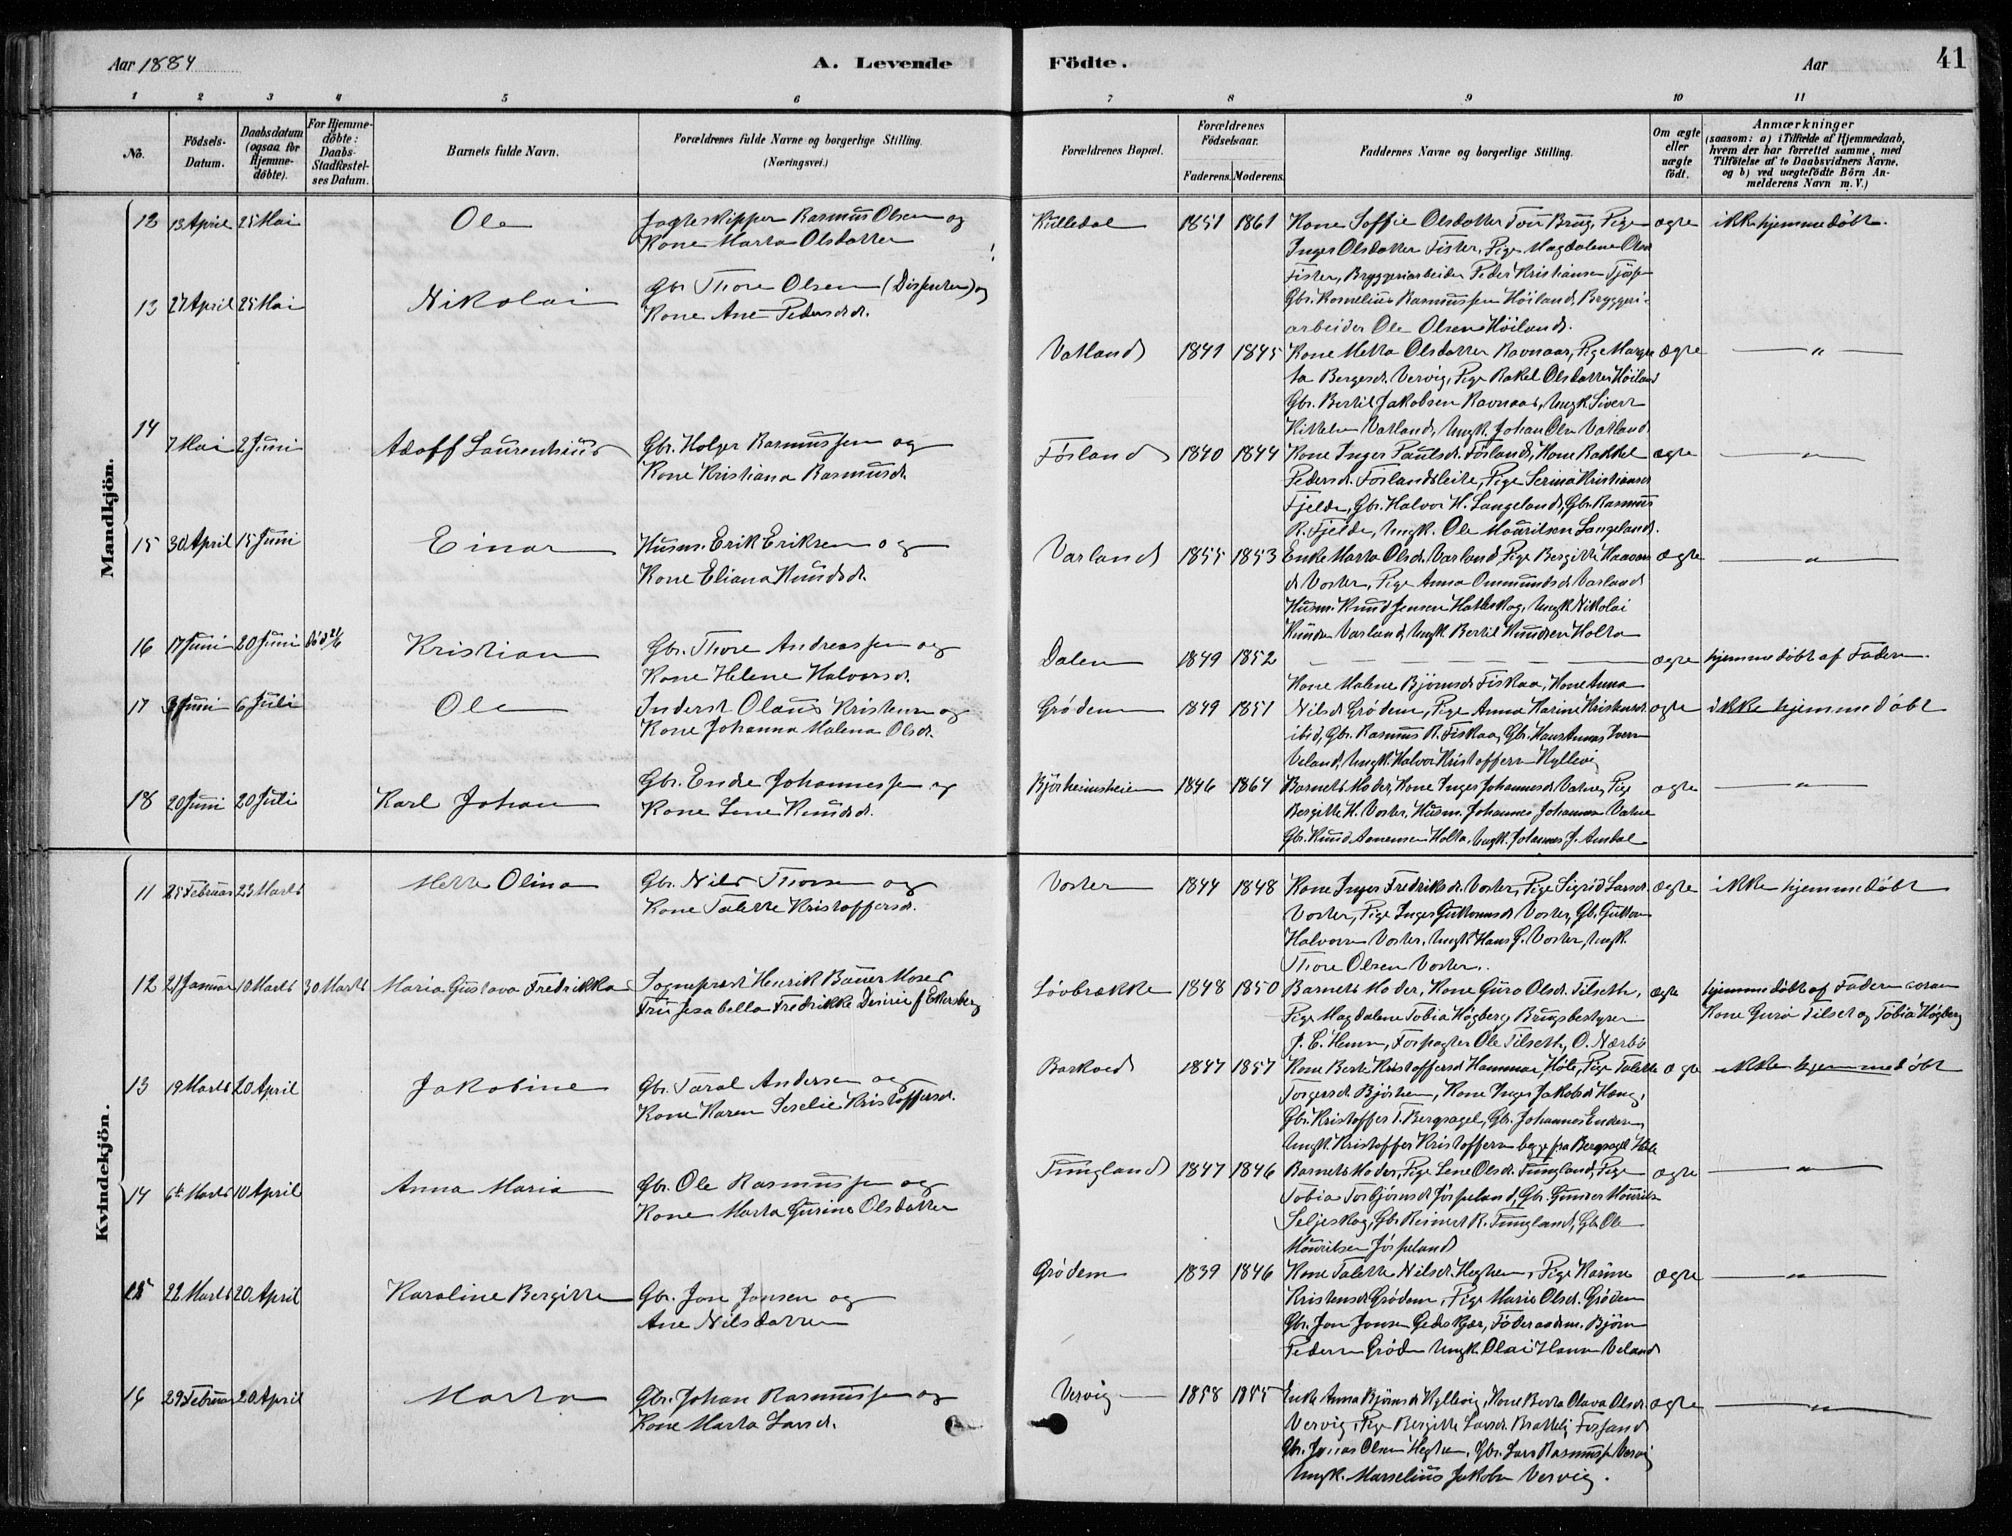 Aar 1884
A. Levende
Födte.
Aar
41
1 2 3 4 5 6 7 8 9 10 11
No.
Födsels-
Datum.
Daabsdatum
(ogsaa for
Hjemme-
döbte).
For Hjemme-
döbte:
Daabs-
Stadfæstel-
ses Datum.
Barnets fulde Navn.
Forældrenes fulde Navne og borgerlige Stilling.
(Næringsvei.)
Forældrenes Bopæl.
Forældrenes
Födselsaar.
Faderens. Moderens.
Faddernes Navne og borgerlige Stilling.
Om ægte
eller
uægte
födt.
Anmærkninger
(saasom: a) i Tilfælde af Hjemmedaab,
hvem der har forrettet samme, med
Tilföielse af to Daabsvidners Navne,
og b) ved uægtefödte Börn An-
melderens Navn m. V.)
Mandkjön.
12 13 April 25 Mai Ole
Jagteskipper Rasmus Olsen og
Kone Marta Olsdatter
Kulledal 1851 1861
Kone Soffie Olsdatter Tou Brug, Pige
Inger Olsdatter Fister, Pige Magdalene Olsd
Fister, Bryggeriarbeider Peder Kristiansen
Gbr. Kornelius Rasmussen Höiland, Bryggeri-
arbeider Ole Olsen Höiland.
ægte ikke hjemmedöbt.
13 27 April 25 Mai Nikolai
Gbr Thore Olsen og
Kone Ane Pedersdr.
Vatland 1841 1845
Kone Metta Olsdatter Ravnaas, Pige Margre
ta Bergesdr. Vervig, Pige Rakel Olsdatter Höiland
Gbr. Bertil Jakobsen Ravnaas, Ungk. Sivert
Kittelsen Vatland, Ungk. Johan Olsen Vatland
ægte — " —
14 7 Mai 2 Juni Adolf Laurentius
Gbr. Holger Rasmussen og
Kone Kristiana Rasmusdr.
Fosland 1840 1844
Kone Inger Paulsdr. Fosland, Kone Rakkel
Pedersdr. Foslandsleite, Pige Serina Kristiansdr
Fjelde, Gbr. Halvor H. Langeland, Gbr. Rasmus
R. Fjelde, Ungk. Ole Mauritsen Langeland.
ægte — " —
15 30 April 15 Juni Einar
Husm. Erik Eriksen og
Kone Eliana Knudsdr.
Varland 1855 1853
Enke Marta Olsdr. Varland, Pige Bergitte Haavar
dr Voster, Pige Anna Ommundsdr Varland
Husm. Knud Jensen Hatleskog, Ungk Nikolai
Knudsen Varland, Ungk. Bertil Knudsen Holta
ægte — " —
16 17 Juni 20 Juni död 21/6 Kristian
Gbr. Thore Andreassen og
Kone Helene Halvorsdr.
Dalen 1849 1852
— — — —
ægte hjemmedöbt af Faderen.
17 3 Juni 6 Juli Ole
Inderst Olaus Kristensen og
Kone Johanna Malena Olsdr.
Grödem 1849 1851
Kone Malene Björnsdr Fiskaa, Kone Anna
Nilsdr Grödem, Pige Anna Karine Kristensdr.
ibid, Gbr. Rasmus R. Fiskaa, Gbr. Hans
Veland, Ungk. Halvor Kristoffersen Hyllevig
ægte ikke hjemmedöbt
18 20 Juni 20 Juli Karl Johan
Gbr. Endre Johannessen og
Kone Lene Knudsdr.
Björheimsheien 1846 1864
Barnets Moder, Kone Inger Johannesdr Vatne, Pige
Bergitte K. Voster, Husm. Johannes Johannesen Vatne
Gbr. Knud Holta, Ungk. Johannes J. Amdal
ægte — " —
Kvindekjön.
11 25 Februar 23 Marts Mette Olina
Gbr. Nils Thorsen og
Kone Talette Kristoffersdr.
Voster 1844 1848
Kone Inger Fredriksdr. Voster, Pige Sigrid Larsdr.
Voster, Pige Inger Guttormsdr Voster, Gbr. Guttorm
Halvorsen Voster, Ungk Hans G. Voster, Ungk.
Thore Olsen Voster.
ægte ikke hjemmedöbt
12 21 Januar 10 Marts 30 Marts Maria Gustava Fredrikka
Sogneprest Henrik Bauer Moses
Fru Isabella Fredrikke Desirie f Ekersberg
Lövbrække 1848 1850
Barnets Moder, Kone Guro Olsdr. Tilseth,
Pige Magdalene Tobia Høgberg Brugsbestyrer
J. C. Hansen, Forpagter Ole Tilseth, O. Nærbö
ægte hjemmedöbt af Faderen coram
Kone Guro Tilset og Tobia Høgberg
13 19 Marts 20 April Jakobine
Gbr. Taral Andersen og
Kone Karen Seselie Kristoffersdr.
Barkved 1847 1857
Kone Berte Kristoffersdr Hammar Höle, Pige Talette
Torgersdr. Björheim, Kone Inger Jakobsdr Haug,
Gbr. Kristoffer T. Bergsagel, Gbr. Johannes Endresen,
Ungk. Kristoffer Kristoffersen begge fra Bergsagel Höle
ægte ikke hjemmedöbt
14 6te Marts 10 April Anna Maria
Gbr. Ole Rasmussen og
Kone Marta Gurine Olsdatter
Tungland 1847 1846
Barnets Moder, Pige Lene Olsdr. Tungland, Pige
Tobia Torbjörnsdr Jörpeland, Gbr. Gunder Mourits
Seljeskog, Gbr Reinert R. Tungland, Gbr Ole
Mouritsen Jörpeland
ægte — " —
15 22 Marts 20 April Karoline Bergitte
Gbr. Jon Jonsen og
Ane Nilsdatter
Grödem 1839 1846
Kone Talette Nilsdr. Heghem, Pige Karine
Kristensdr Grödem, Pige Marie Olsdr. Grödem
Gbr. Jon Jonsen Gjedskjær, Föderaadsm. Björn
Pedersen Gröde Ungk. Olai Hansen Veland
ægte — " —
16 29 Februar 20 April Marta
Gbr. Johan Rasmussen og
Kone Marta Larsdr.
Vervig 1858 1855
Enke Anna Björnsdr Hyllevig, Kone Berta Olava Olsdr.
Vervig, Pige Bergitte Larsdr. Brattelid Forsand
Gbr. Jonas Olsen Heghem, Gbr. Lars Rasmussen Vervig
Ungk. Marselius Jakobsen Vervig.
ægte — " —